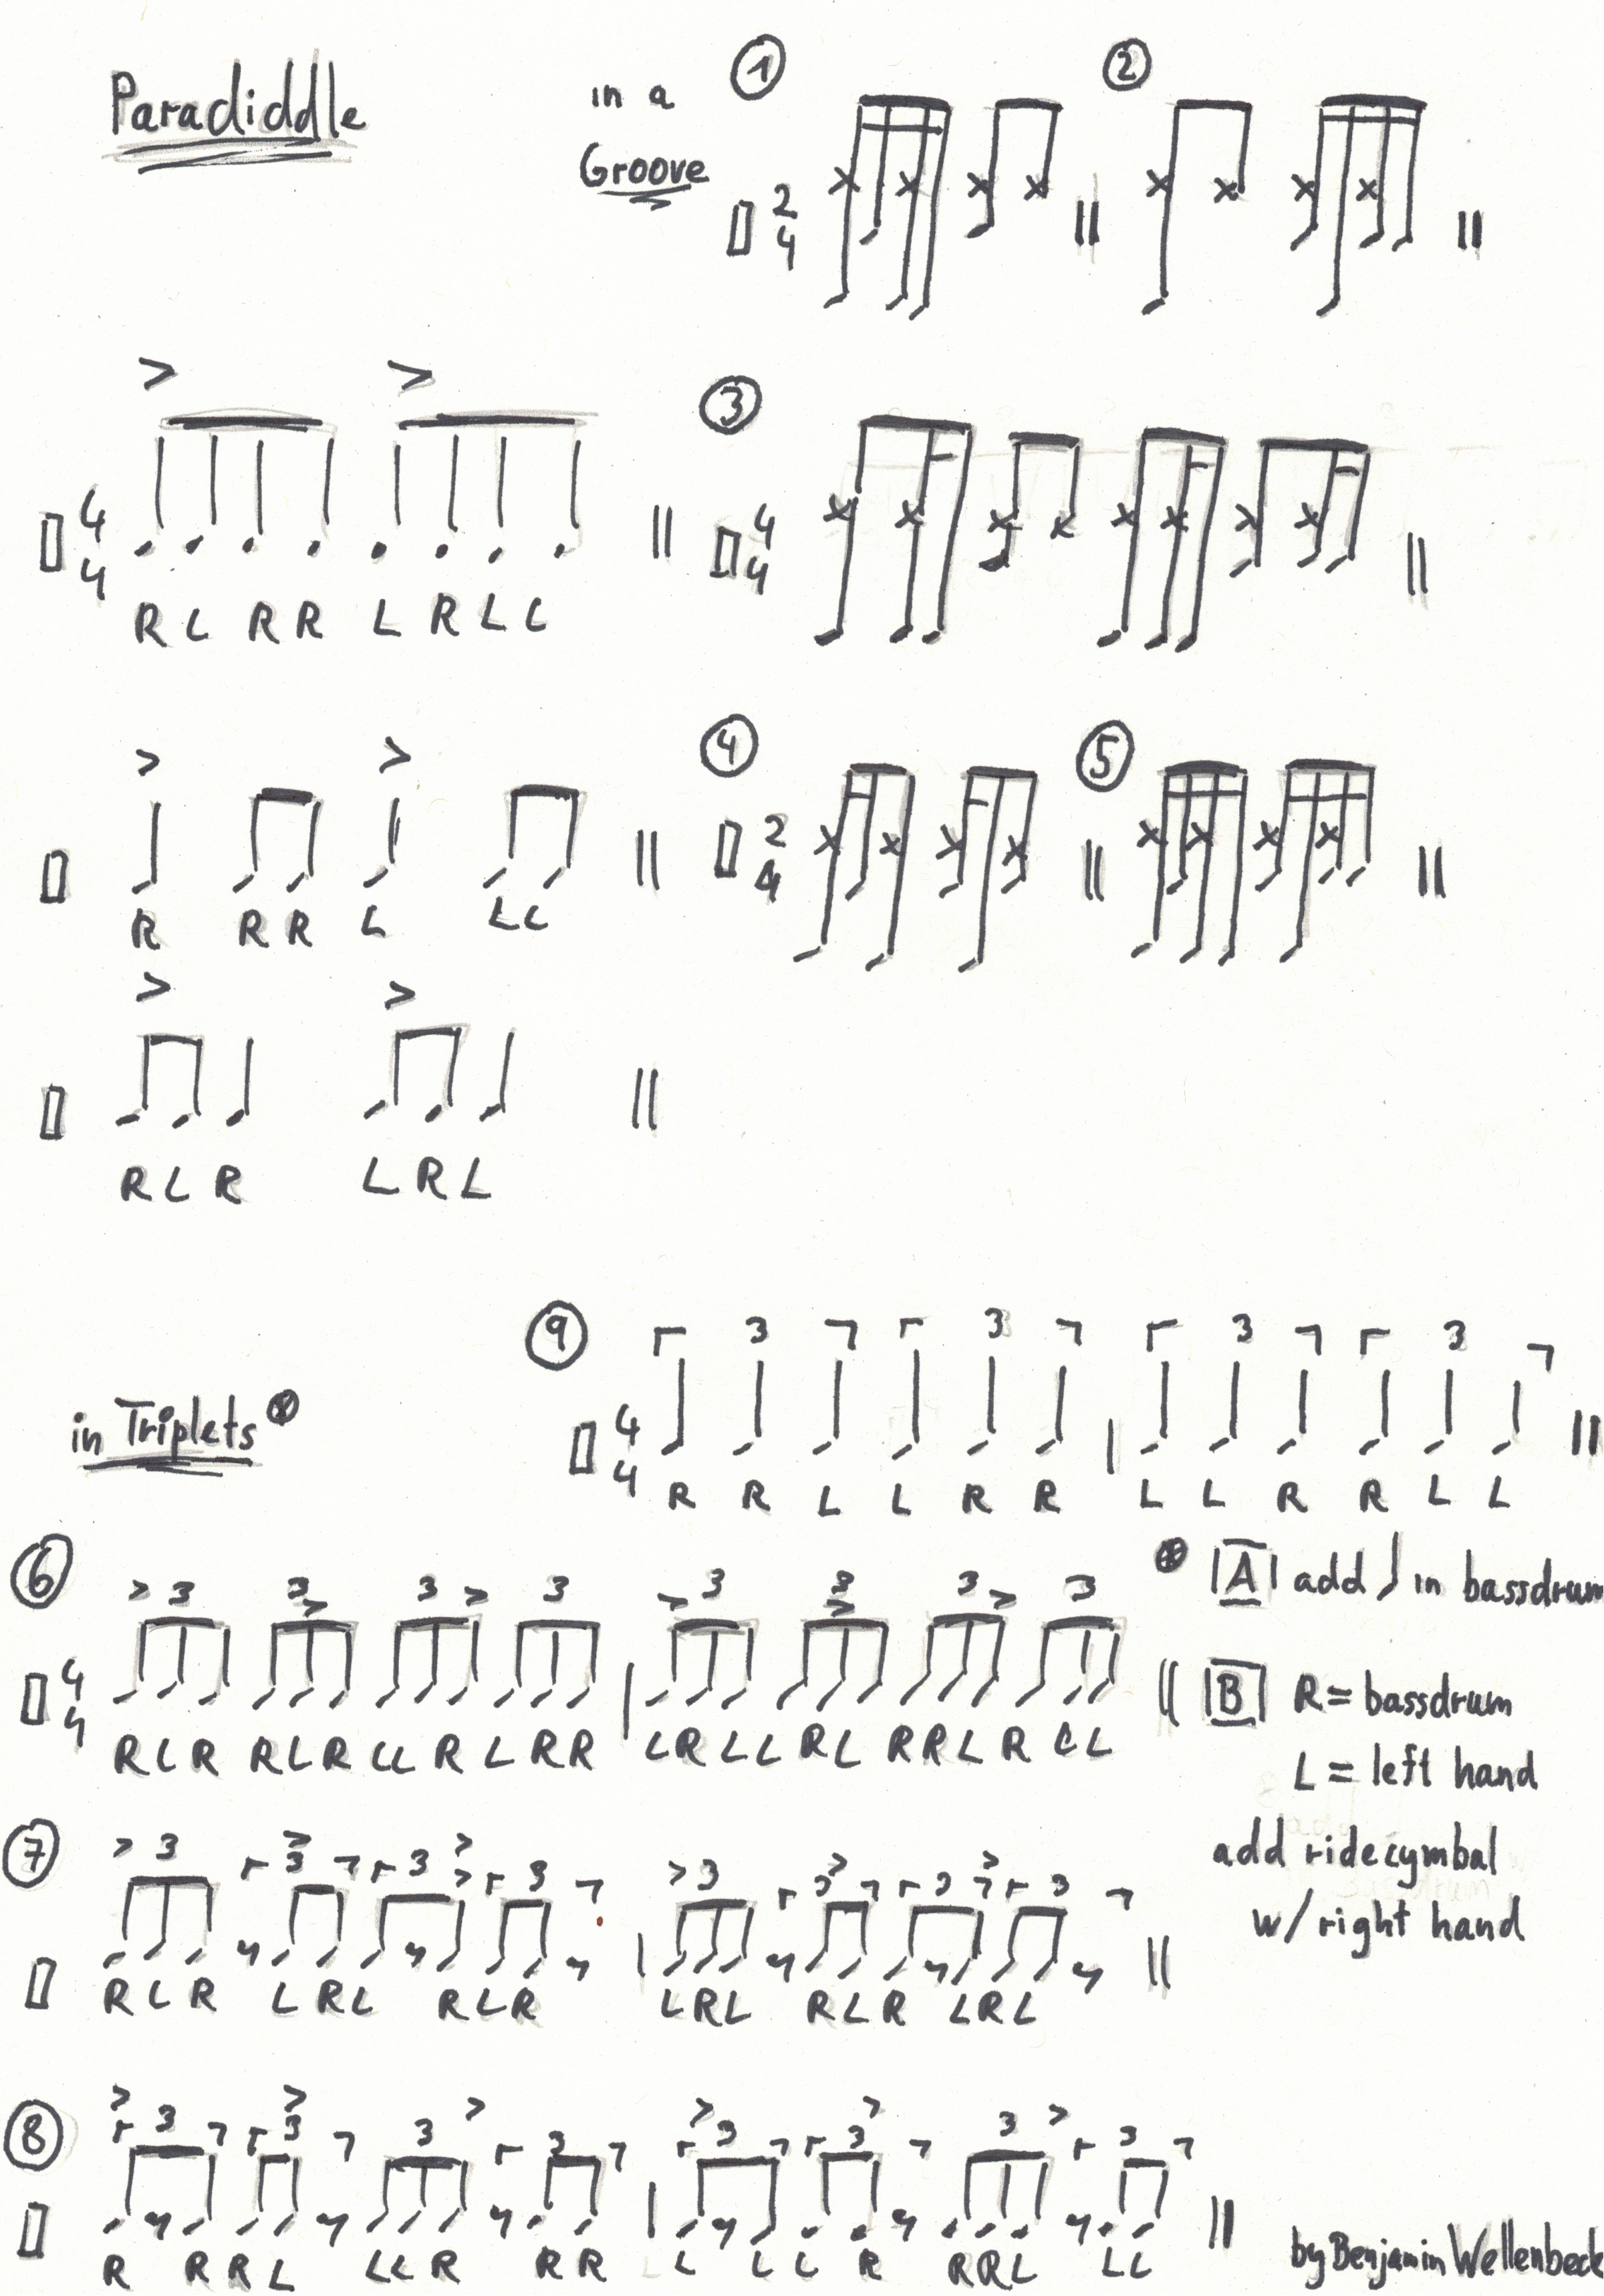 Paradiddle
in a
Groove
①
②
2
4
4
4
R L R R L R L L
③
4
4
R R R L L L
④
2
4
⑤
R L R L R L
in Triplets
⑨
3 3 3 3
4
4
R R L L R R L L R R L L
⑥
3 3 3 3 3 3 3 3
4
4
R L R R L R L L R L R R L R L L R L R R L R L L
A add ♩ in bassdrum
B R = bassdrum
L = left hand
add ridecymbal
w/ right hand
⑦
3 3 3 3 3 3 3 3
R L R L R L R L R L R L R L R L R L
⑧
3 3 3 3 3 3 3 3
R R R L L L R R R L L L R R R L L L
by Benjamin Wellenbeck